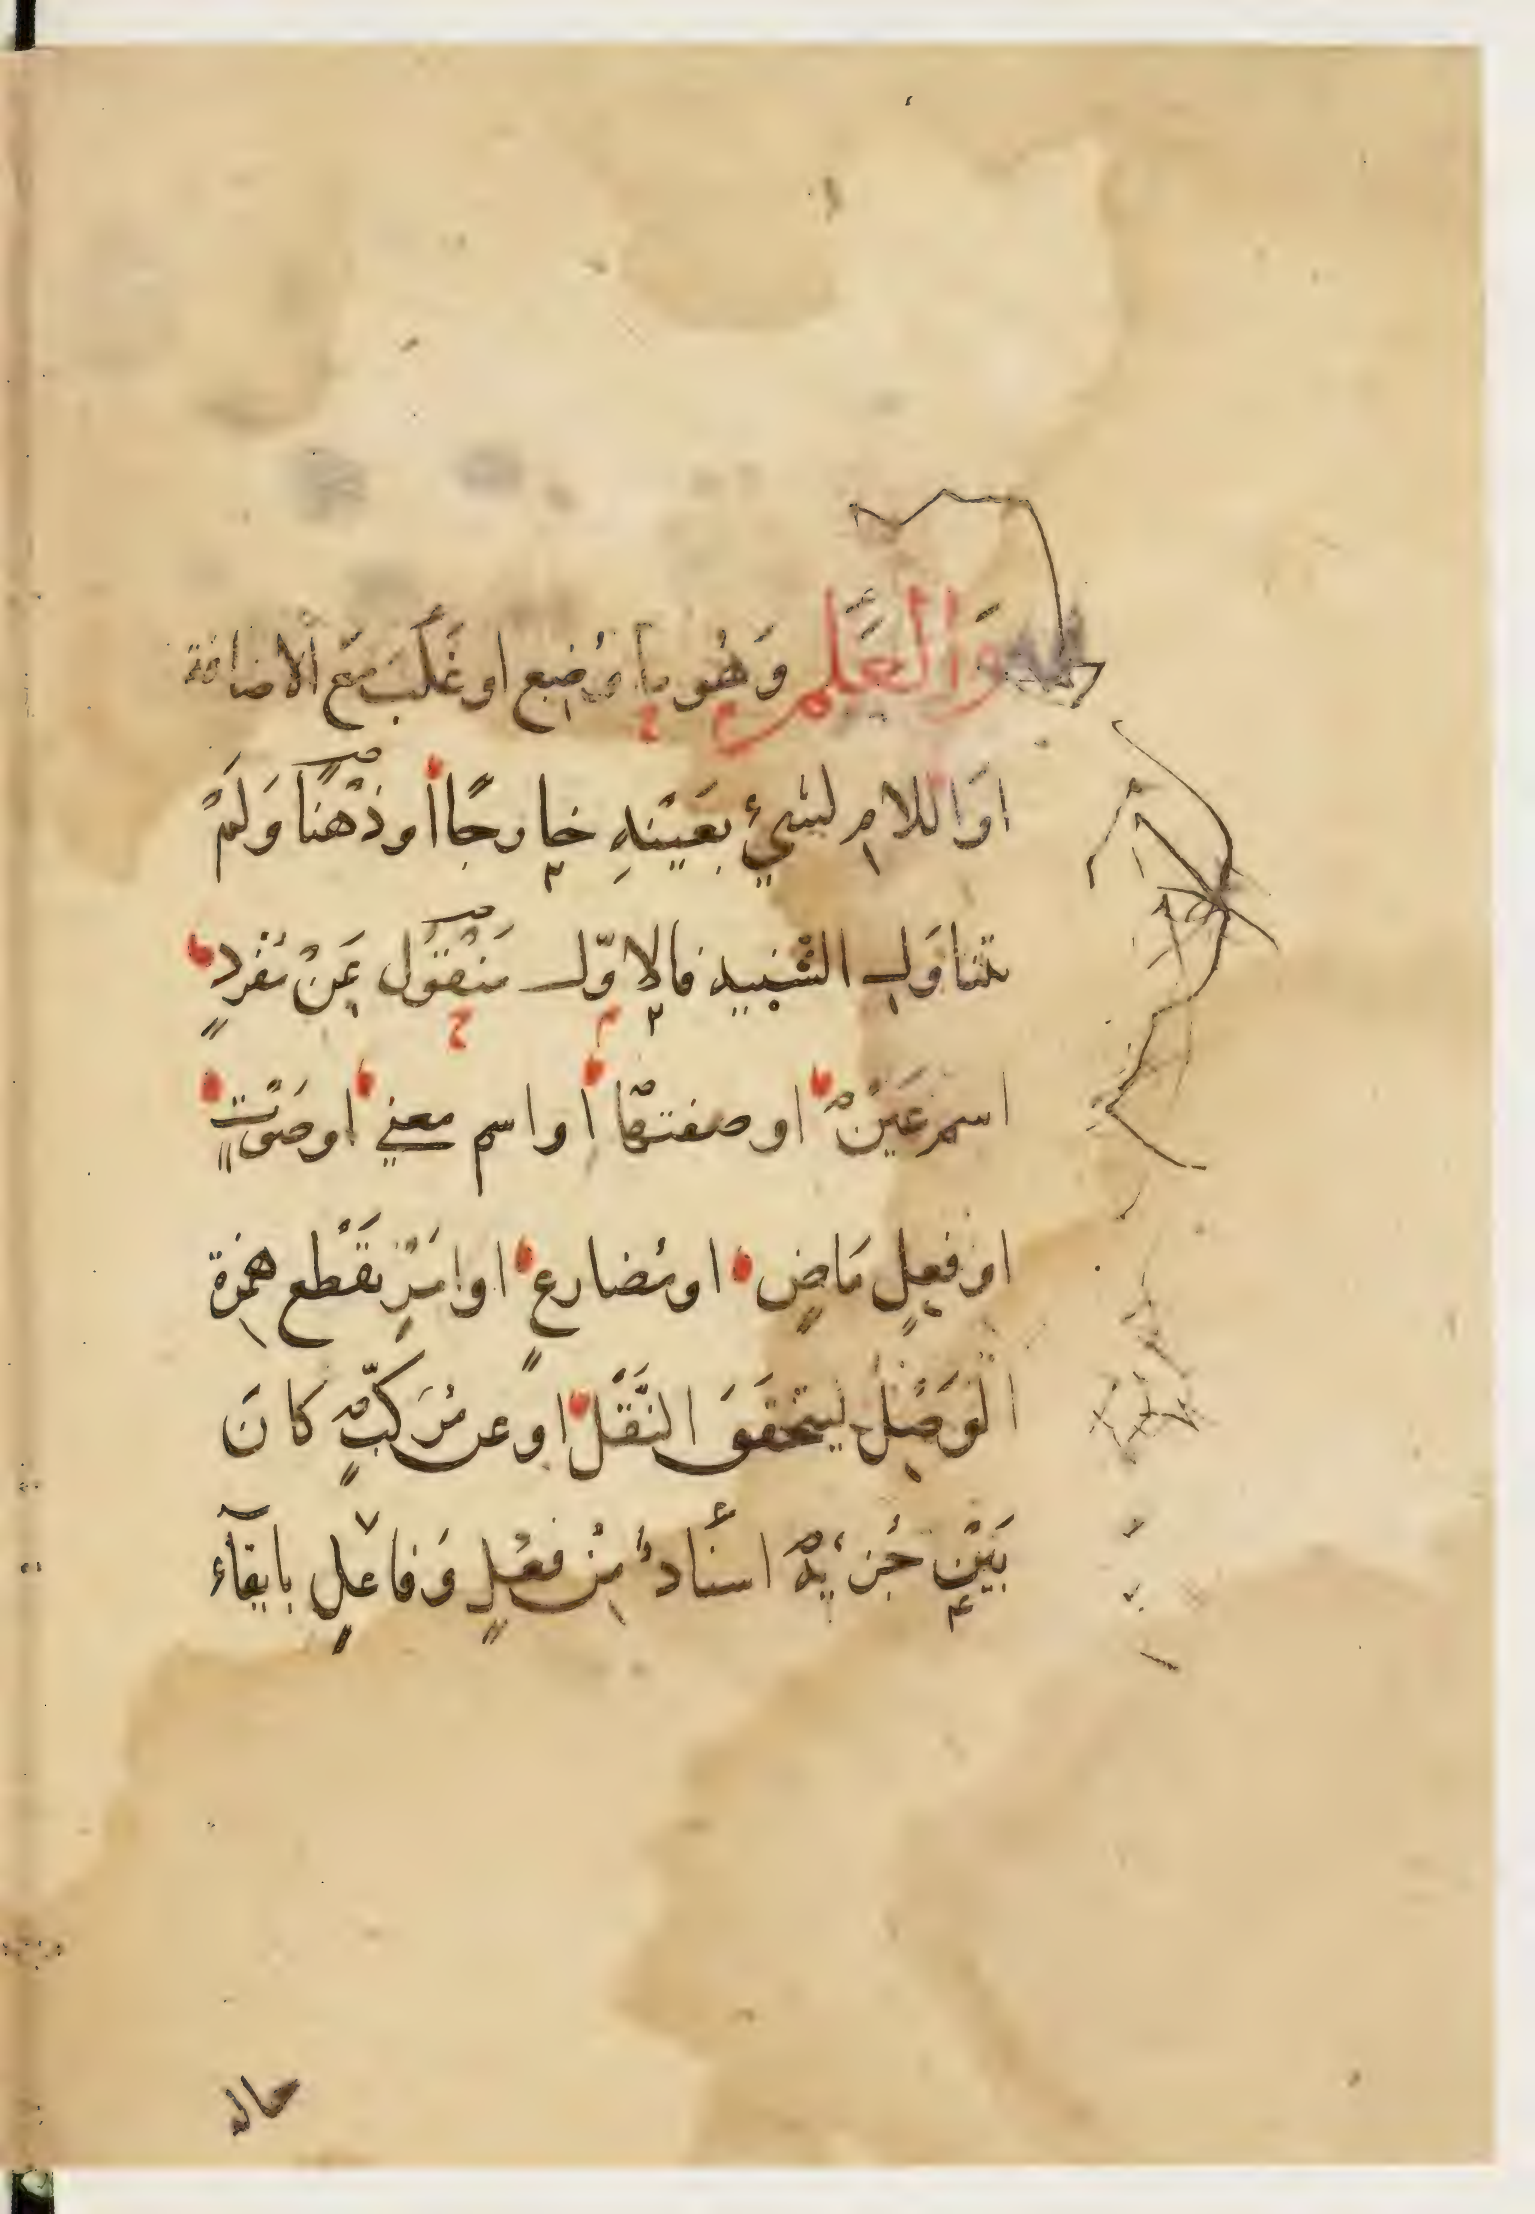 وَالعَلَم وَهُو ما وُضِع او غَلَبَ مَعَ الاضافة
اوَاللام لشيءٍ بعَيْنهِ خارجًا اوذهْنا وَلَمْ
يتناوَل الشبيه فالاوّل مَنْقول عَنْ مُفردٍ
اسم عَيْنٍ اوصفتها اواسم معني اوصَوْتٍ
اوفعلٍ مَاضٍ اومُضارعٍ اوامَرٍ بقَطع همزة
الوَصْل ليتحقَقَ النَّقَل اوعن مُرَكبٍّ كانَ
بَيْن جُزءيْهِ اسنادٌ مِنْ فعْلٍ وَفاعلٍ بابقآء
حاله